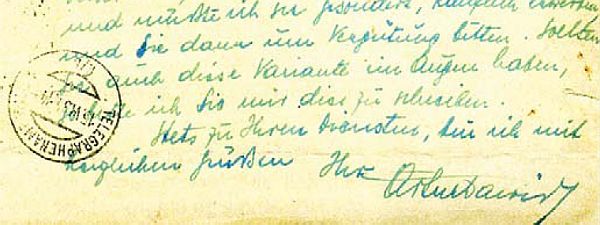 und müsste ich sie gesondert, käuflich erwerben
und Sie dann um Vergütung bitten. Sollten
Sie auch diese Variante im Augen haben,
bitte ich Sie mir dies zu schreiben.
Stets zu Ihren Diensten, bin ich mit
herzlichen Grüßen Ihr
TELEGRAPHENAMT